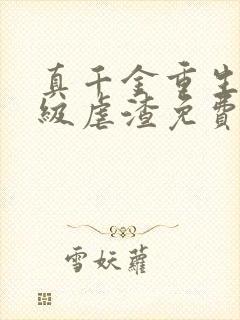 真千金重生
級虐渣免費
雪妖蘿